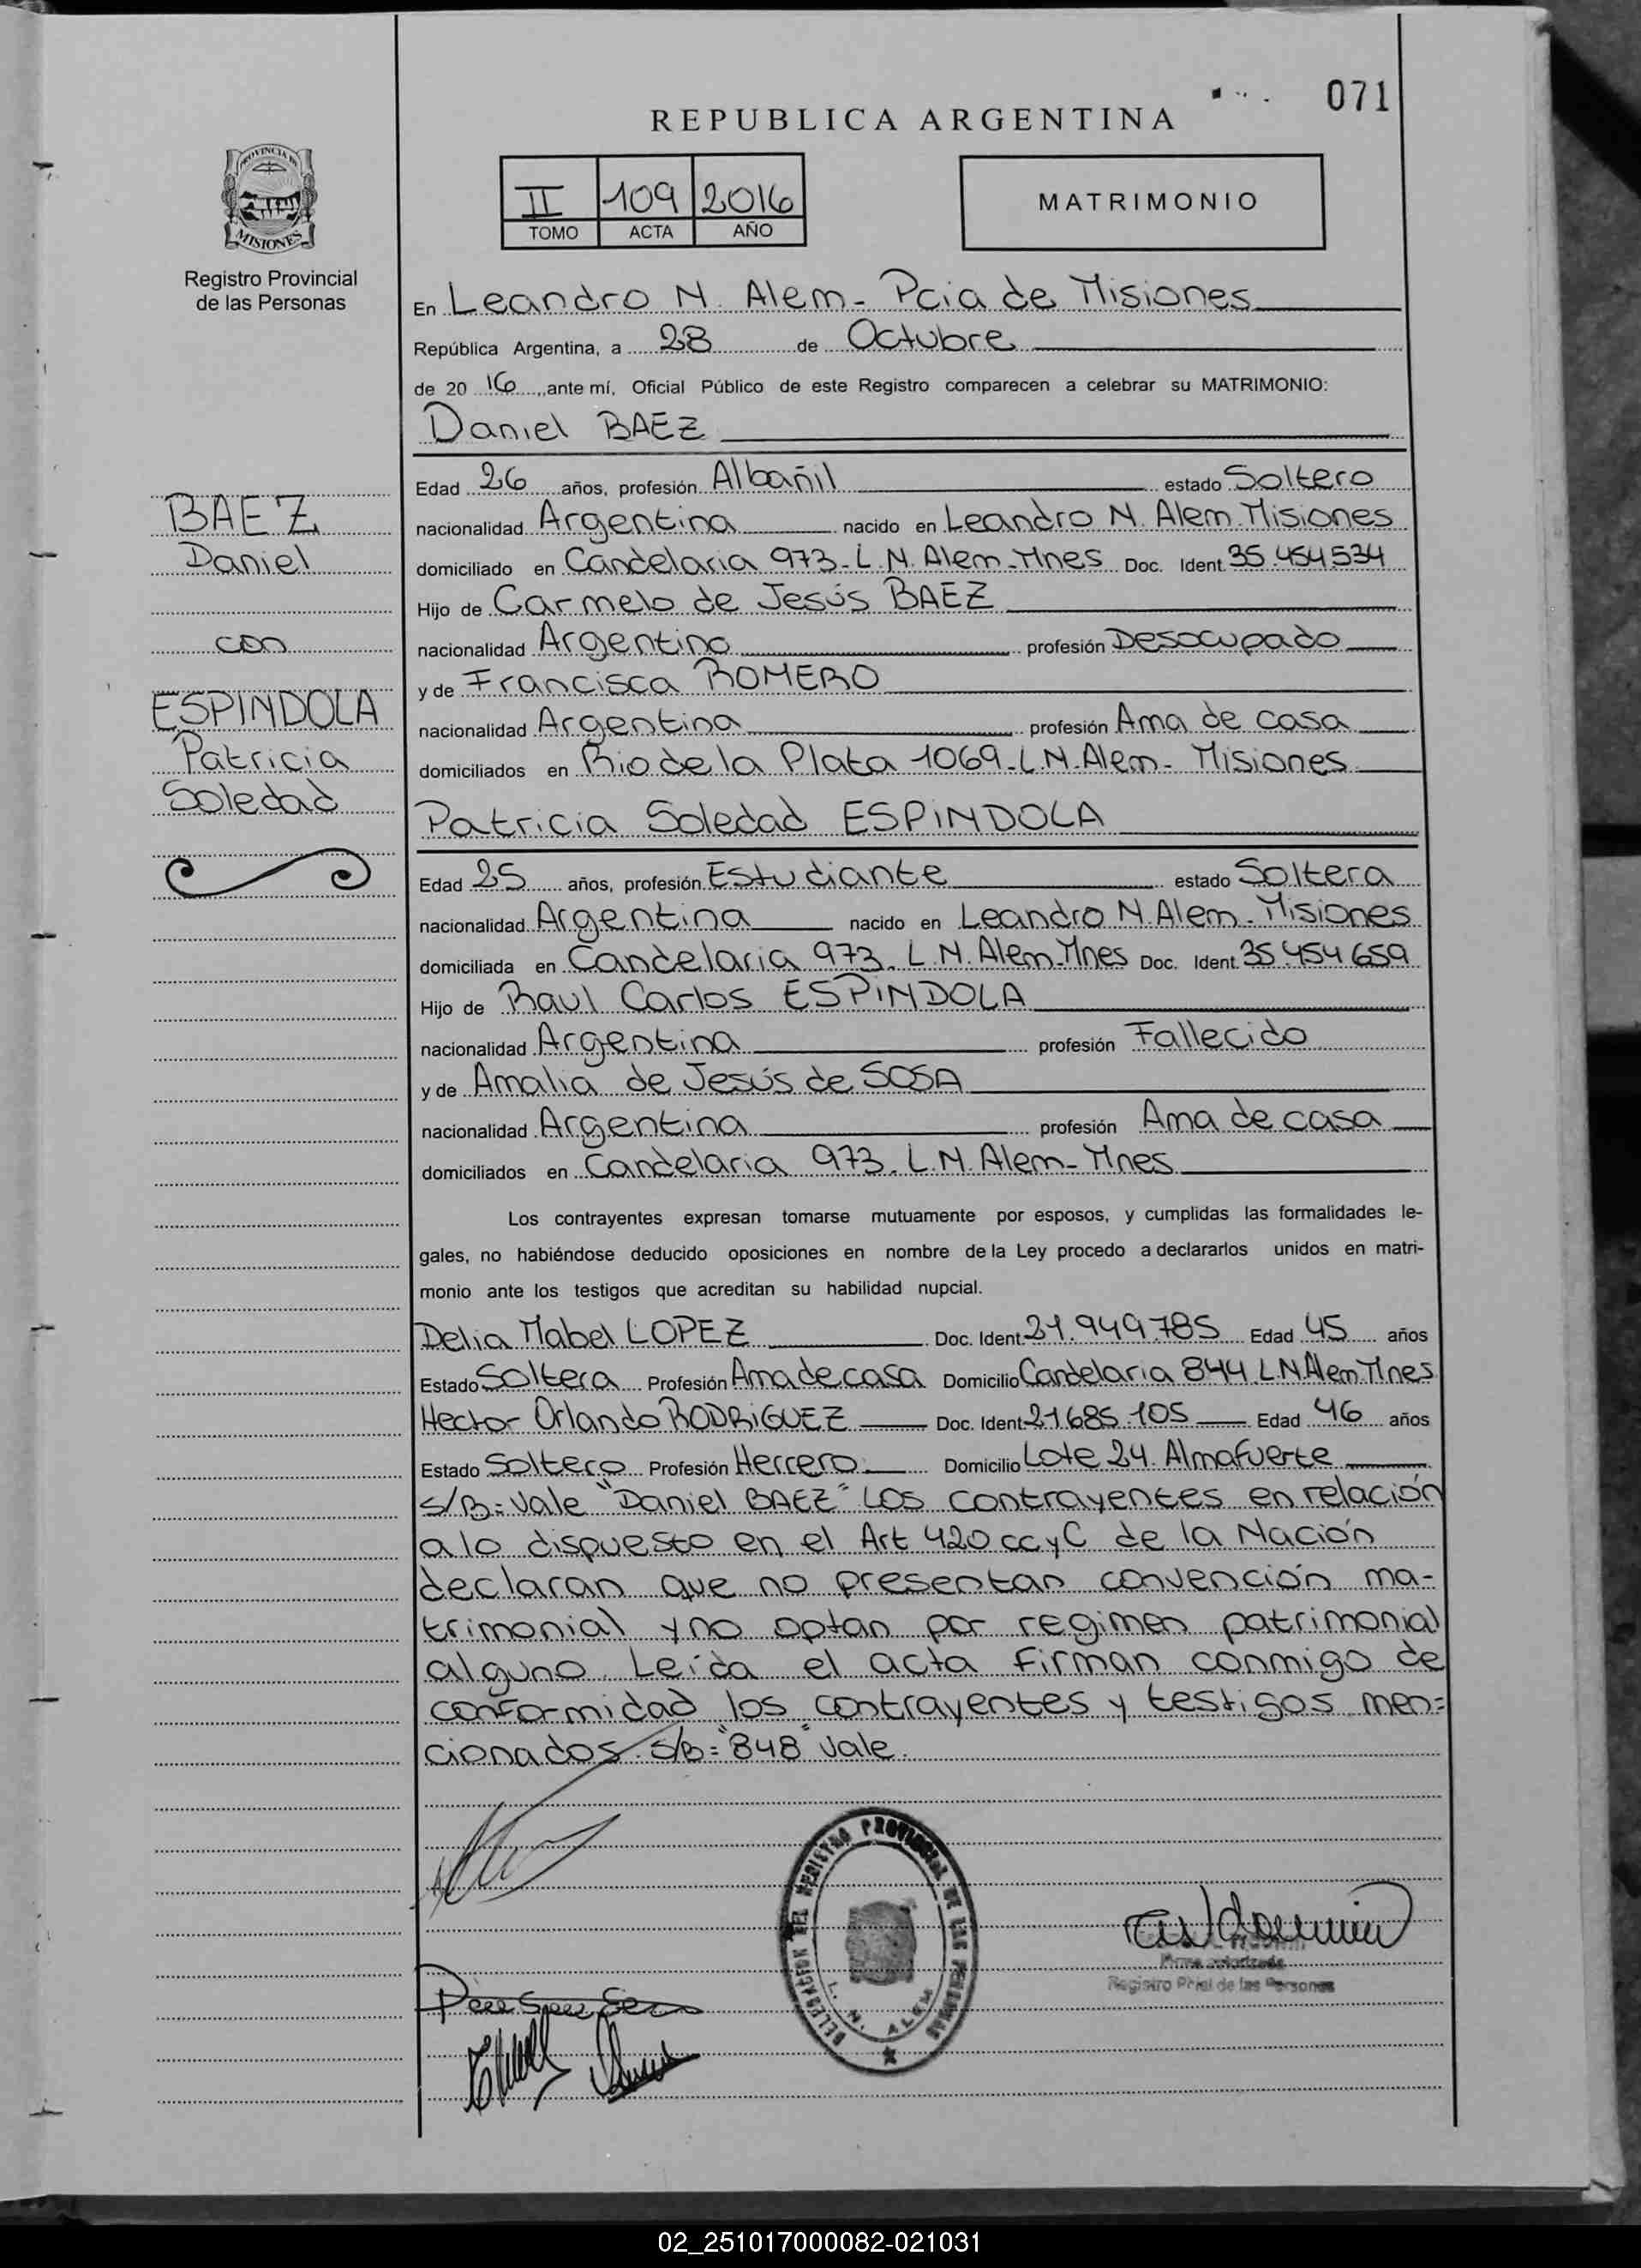 071
REPUBLICA ARGENTINA
PROVINCIA DE
MISIONES
Registro Provincial
de las Personas
II 109 2016
TOMO ACTA AÑO
MATRIMONIO
En Leandro N. Alem - Pcia de Misiones
República Argentina, a 28 de Octubre
de 20 16, ante mí, Oficial Público de este Registro comparecen a celebrar su MATRIMONIO:
Daniel BAEZ
Edad 26 años, profesión Albañil estado Soltero
nacionalidad Argentina nacido en Leandro N. Alem. Misiones
domiciliado en Candelaria 973 - L. N. Alem - Mnes Doc. Ident. 35.454.534
Hijo de Carmelo de Jesús BAEZ
nacionalidad Argentino profesión Desocupado
y de Francisca ROMERO
nacionalidad Argentina profesión Ama de casa
domiciliados en Rio de la Plata 1069 - L. N. Alem - Misiones
BAEZ
Daniel
con
ESPINDOLA
Patricia
Soledad
Patricia Soledad ESPINDOLA
Edad 25 años, profesión Estudiante estado Soltera
nacionalidad Argentina nacido en Leandro N. Alem - Misiones
domiciliada en Candelaria 973. L. N. Alem - Mnes Doc. Ident. 35.454.659
Hijo de Raul Carlos ESPINDOLA
nacionalidad Argentina profesión Fallecido
y de Amalia de Jesús de SOSA
nacionalidad Argentina profesión Ama de casa
domiciliados en Candelaria 973. L. N. Alem - Mnes
Los contrayentes expresan tomarse mutuamente por esposos, y cumplidas las formalidades le-
gales, no habiéndose deducido oposiciones en nombre de la Ley procedo a declararlos unidos en matri-
monio ante los testigos que acreditan su habilidad nupcial.
Delia Mabel LOPEZ Doc. Ident. 21.949.785 Edad 45 años
Estado Soltera Profesión Ama de casa Domicilio Candelaria 844 L.N Alem Mnes
Hector Orlando RODRIGUEZ Doc. Ident. 21.685.105 Edad 46 años
Estado Soltero Profesión Herrero Domicilio Lote 24. Almafuerte
S/B = Vale "Daniel BAEZ" Los contrayentes en relación
a lo dispuesto en el Art 420 CC y C de la Nación
declaran que no presentan convención ma-
trimonial y no optan por regimen patrimonial
alguno. Leída el acta firman conmigo de
conformidad los contrayentes y testigos men=
cionados. S/B = "848" Vale.
DELEGACION DEL REGISTRO PROVINCIAL DE LAS PERSONAS
L. N. ALEM
Firma autorizada
Registro Prial de las Personas
02_251017000082-021031